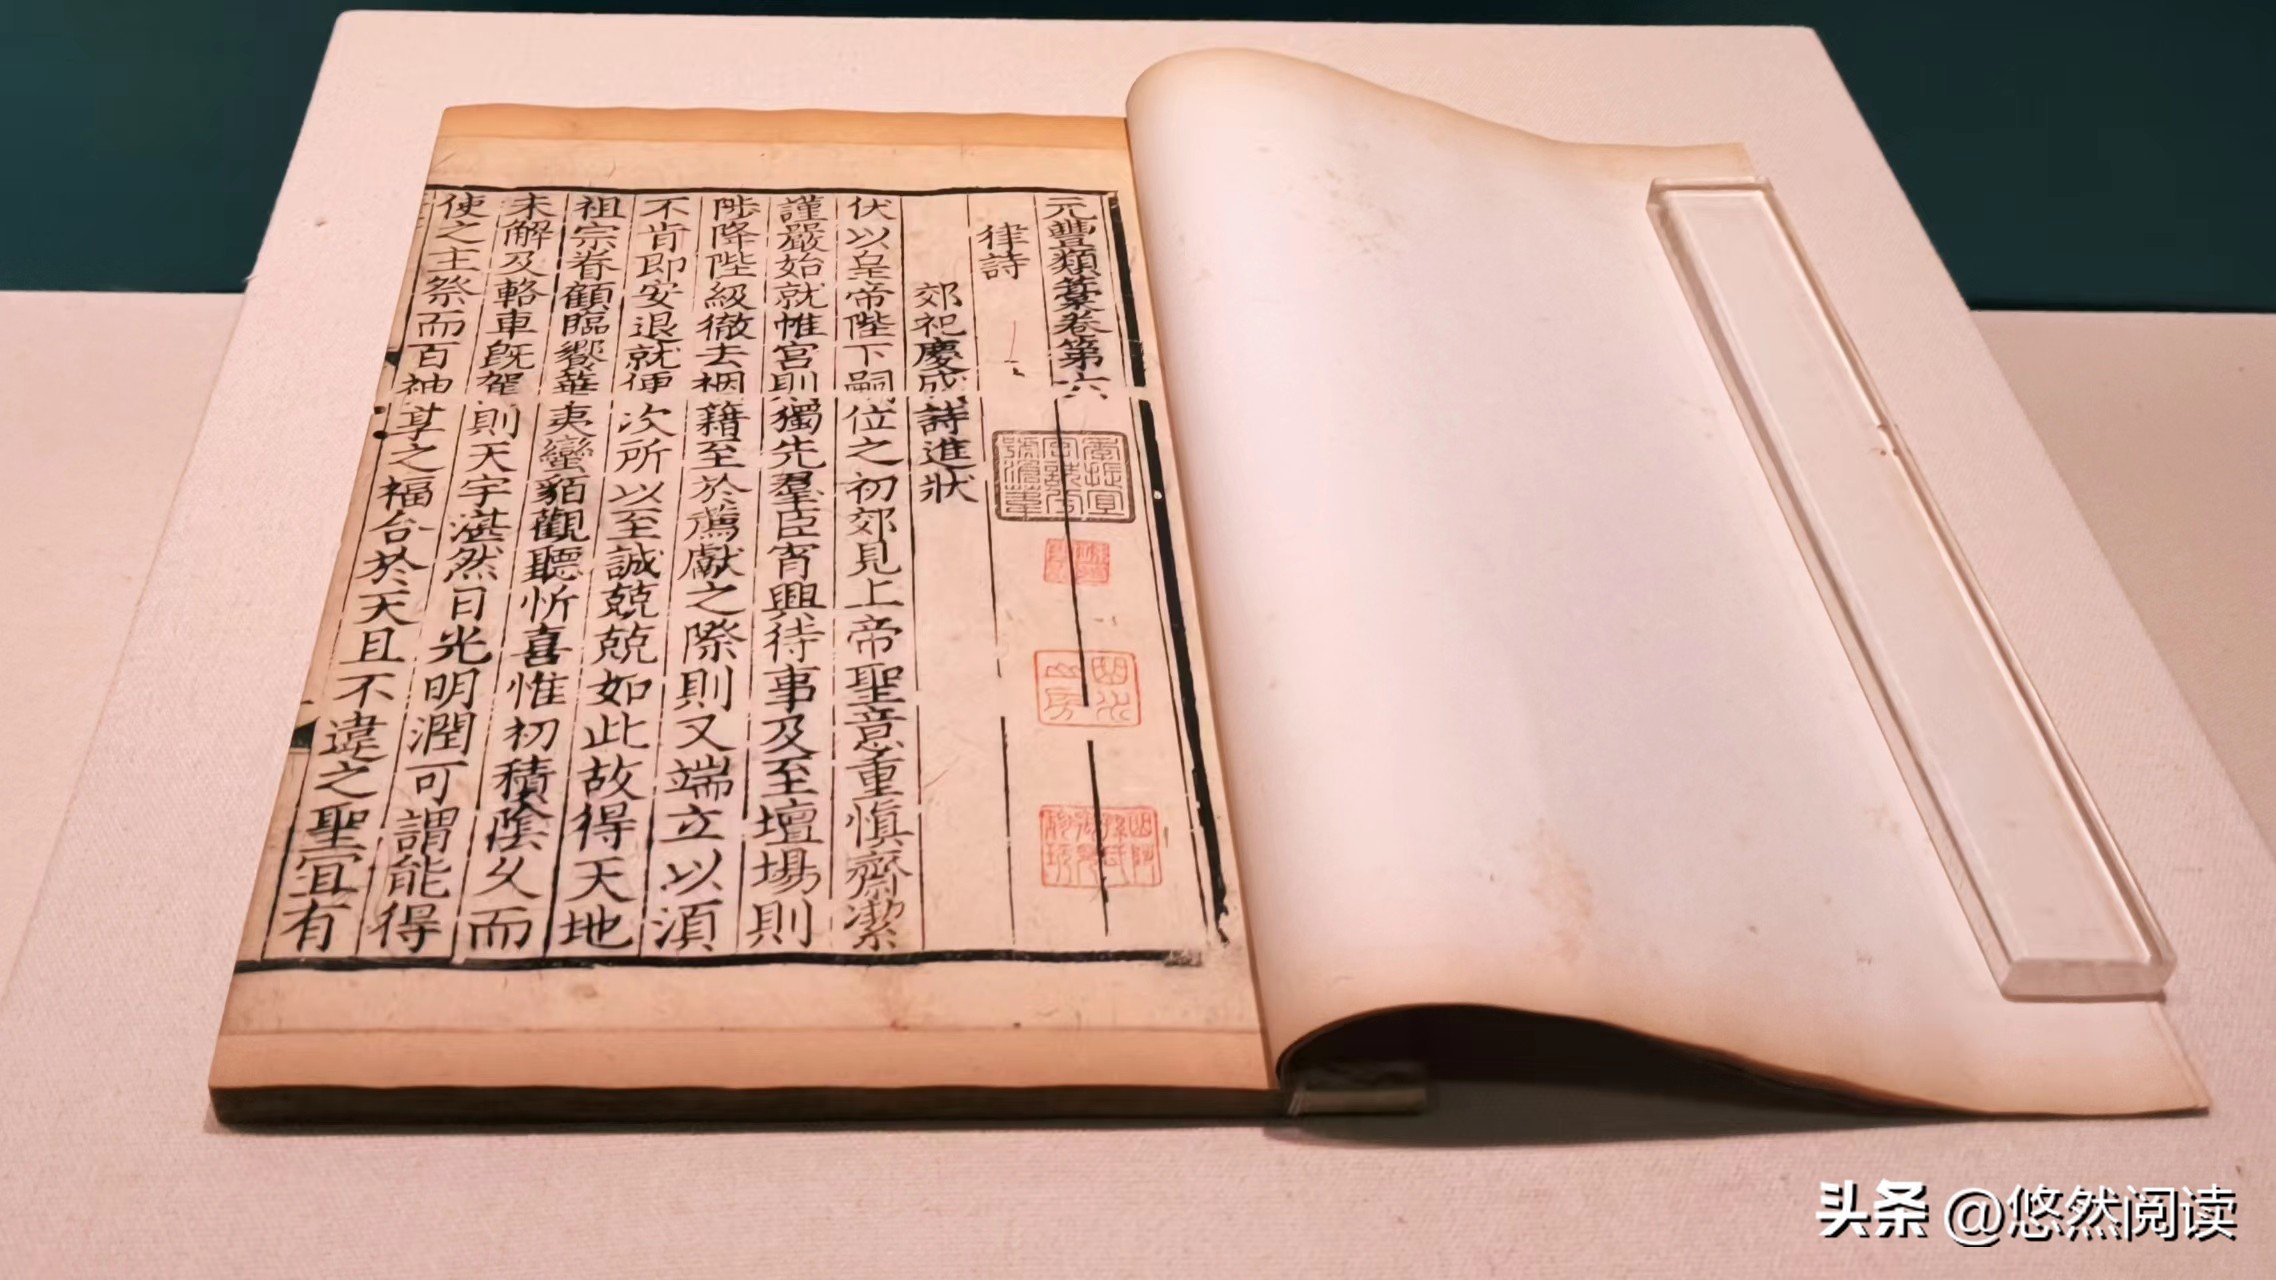 元豐類藁卷第六
律詩
郊祀慶成詩進狀
伏以皇帝陛下嗣位之初郊見上帝聖意重愼齋潔
謹嚴始就帷宮則獨先羣臣宵興待事及至壇場則
陟降陛級徹去裀藉至於薦獻之際則又端立以湏
不肯即安退就便次所以至誠兢兢如此故得天地
祖宗眷顧臨饗華夷蠻貊觀聽忻喜惟初積陰乆而
未解及輅車旣駕則天宇湛然日光明潤可謂能得
使之主祭而百神享之福合於天且不違之聖宜有
头条 @悠然阅读